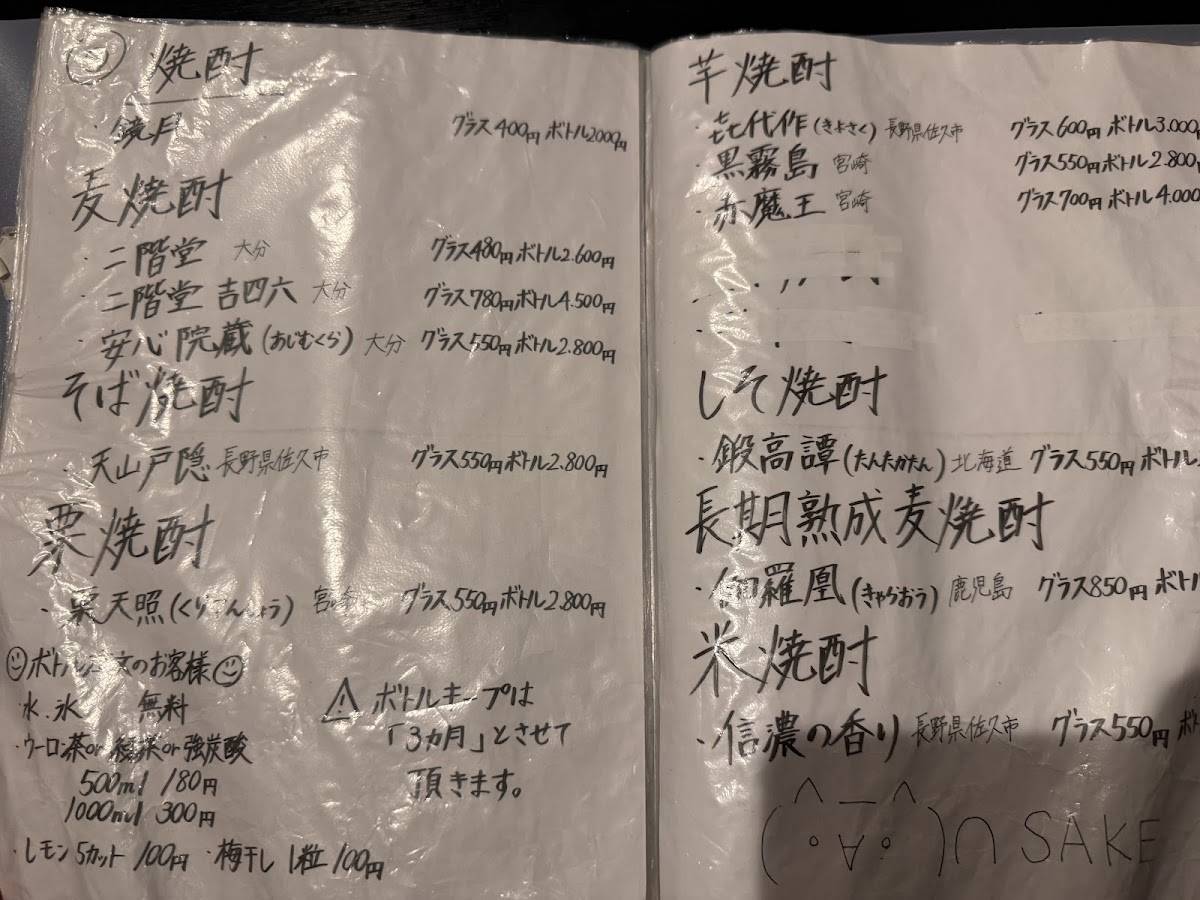 焼酎
・鏡月 グラス400円 ボトル2000円
麦焼酎
・二階堂 大分 グラス480円 ボトル2.600円
・二階堂 吉四六 大分 グラス780円 ボトル4.500円
・安心院蔵(あじむくら) 大分 グラス550円 ボトル2.800円
そば焼酎
・天山戸隠 長野県佐久市 グラス550円 ボトル2.800円
栗焼酎
・栗天照(くり しょう) 宮崎 グラス550円 ボトル2.800円
ボトル 文のお客様
・水.氷 無料
・ウーロン茶or緑茶or強炭酸
500ml 180円
1000ml 300円
・レモン5カット 100円 ・梅干し 1粒 100円
⚠ ボトルキープは
「3カ月」とさせて
頂きます。
芋焼酎
・㐂代作(きよさく) 長野県佐久市 グラス600円 ボトル3.000
・黒霧島 宮崎 グラス550円 ボトル2.800
・赤魔王 宮崎 グラス700円 ボトル4.000
しそ焼酎
・鍛高譚(たんたかたん) 北海道 グラス550円 ボトル
長期熟成麦焼酎
・伽羅凰(きゃらおう) 鹿児島 グラス850円 ボト
米焼酎
・信濃の香り 長野県佐久市 グラス550円 ボト
SAKE